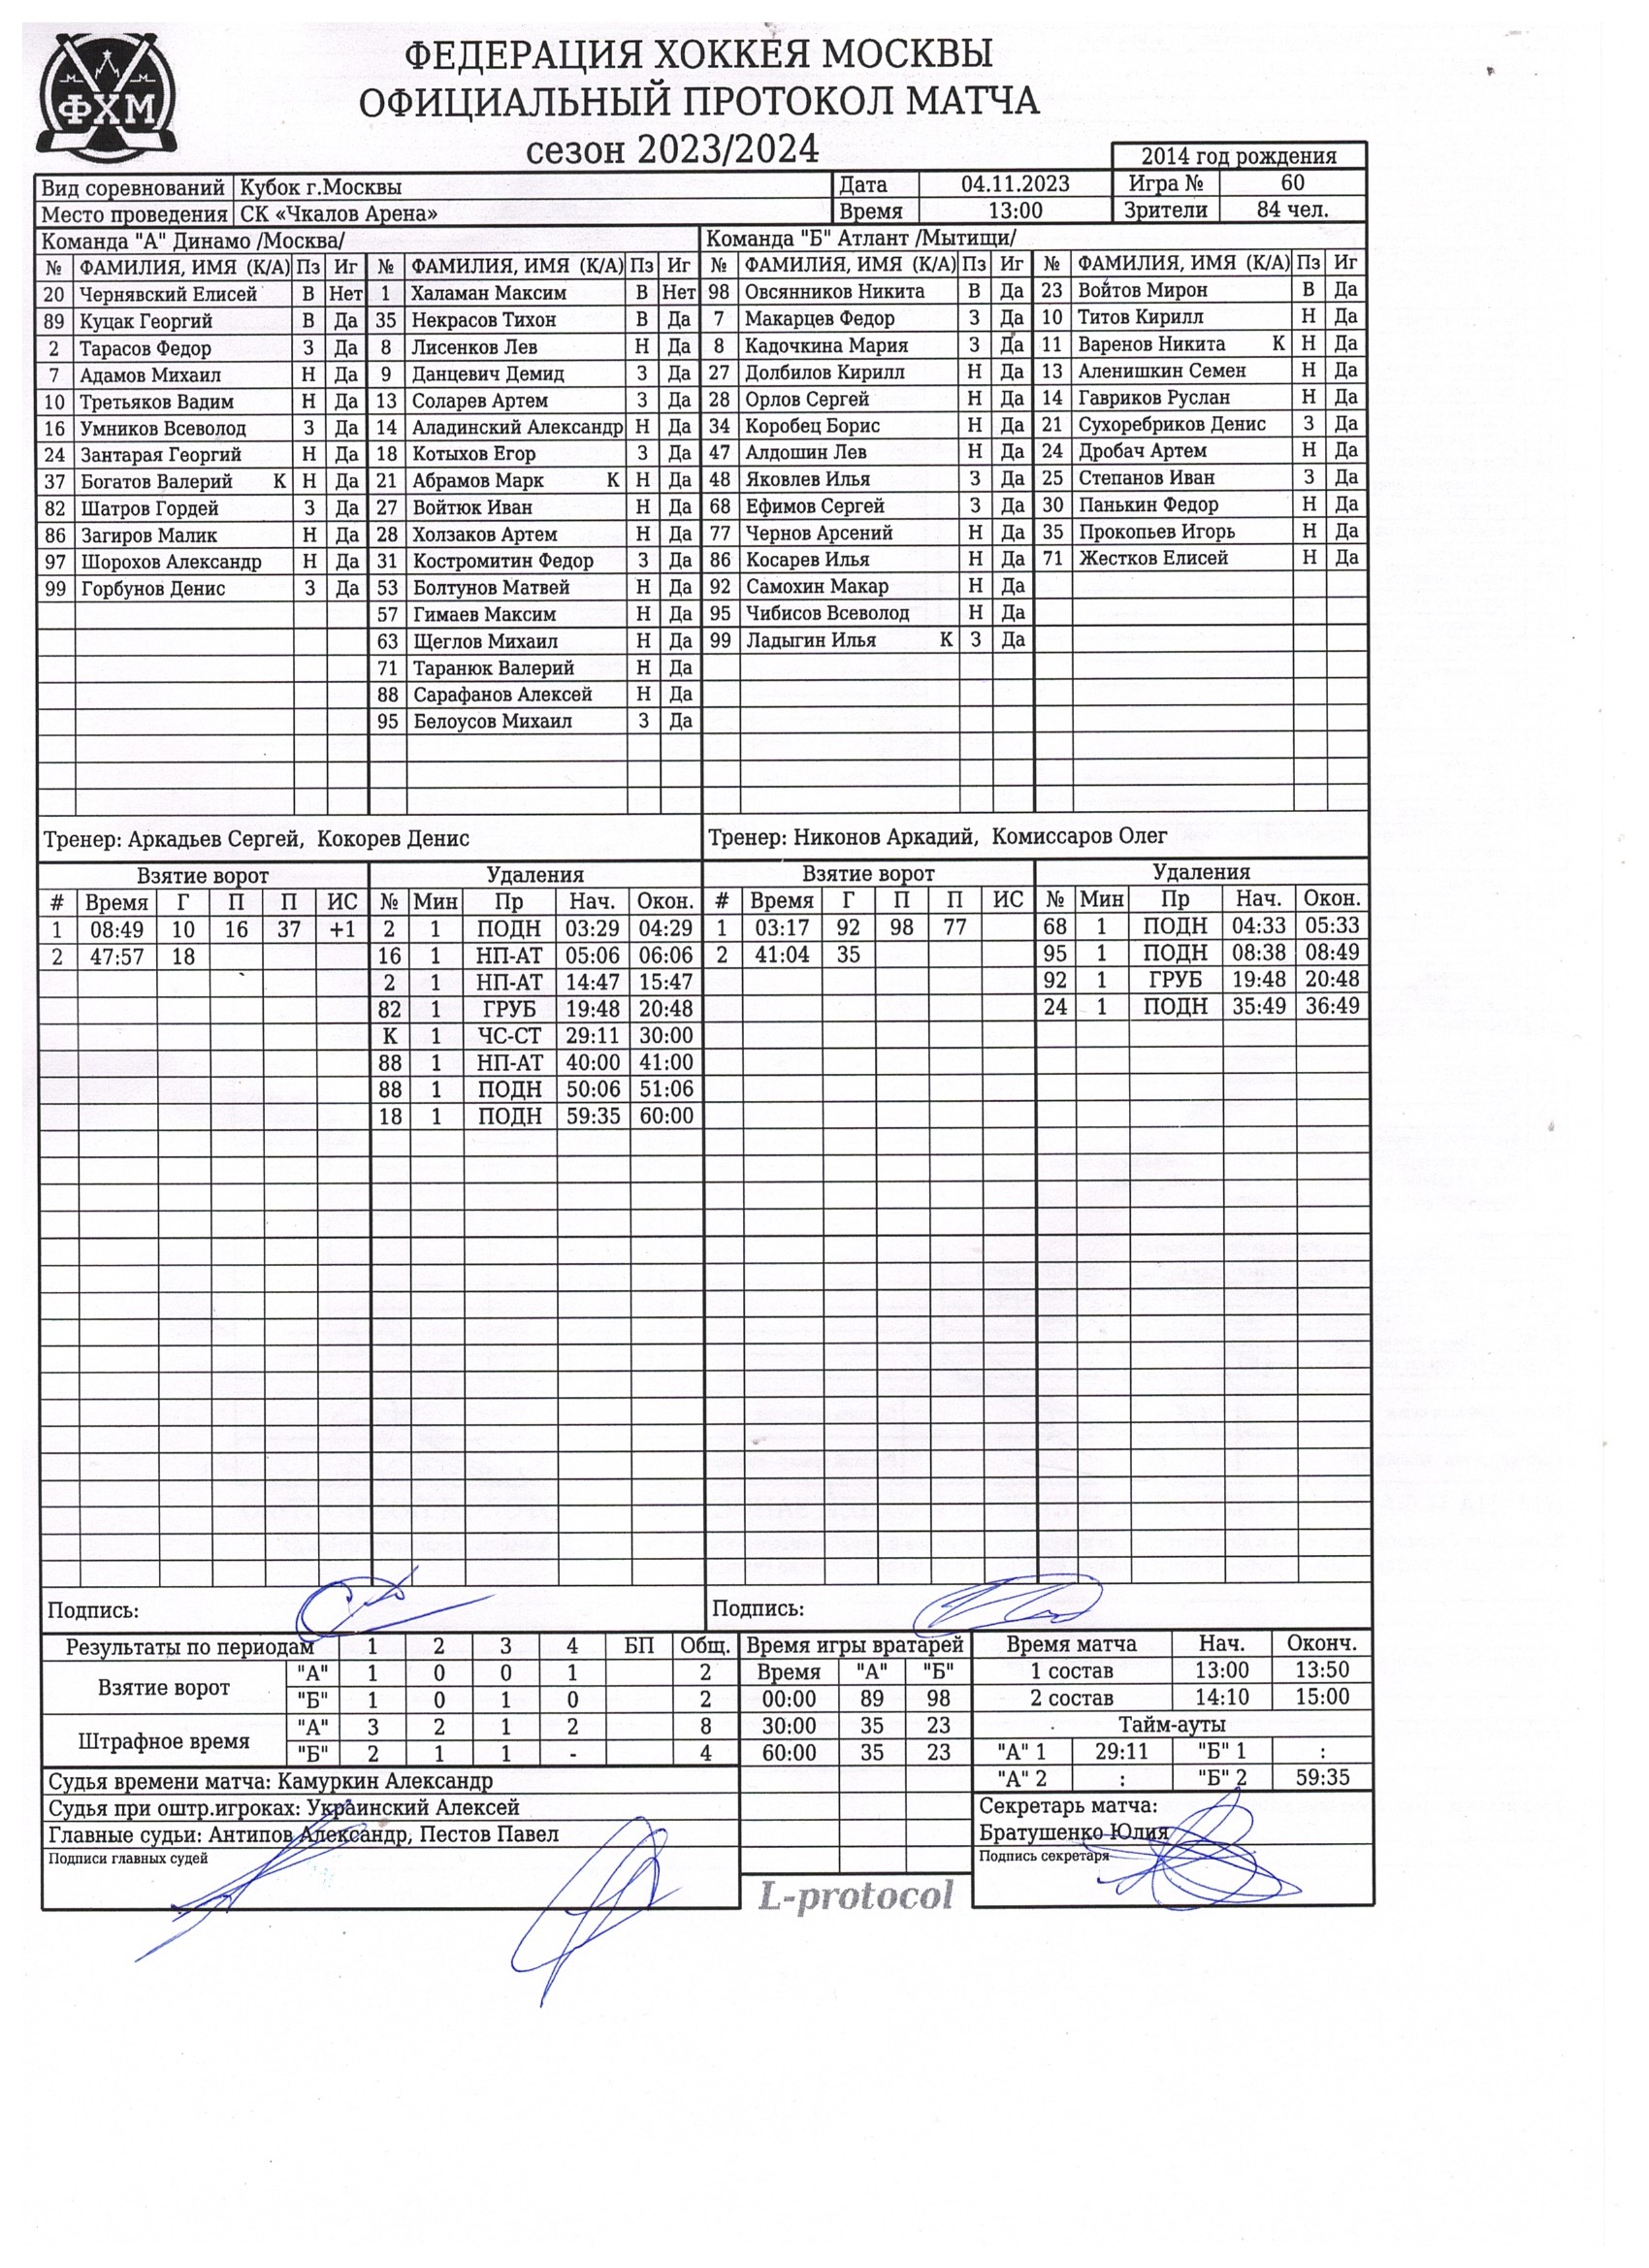 ФХМ
ФЕДЕРАЦИЯ ХОККЕЯ МОСКВЫ
ОФИЦИАЛЬНЫЙ ПРОТОКОЛ МАТЧА
сезон 2023/2024
2014 год рождения
Вид соревнований Кубок г.Москвы Дата 04.11.2023 Игра № 60
Место проведения СК «Чкалов Арена» Время 13:00 Зрители 84 чел.
Команда "А" Динамо /Москва/ Команда "Б" Атлант /Мытищи/
№ ФАМИЛИЯ, ИМЯ (К/А) Пз Иг № ФАМИЛИЯ, ИМЯ (К/А) Пз Иг № ФАМИЛИЯ, ИМЯ (К/А) Пз Иг № ФАМИЛИЯ, ИМЯ (К/А) Пз Иг
20 Чернявский Елисей В Нет 1 Халаман Максим В Нет 98 Овсянников Никита В Да 23 Войтов Мирон В Да
89 Куцак Георгий В Да 35 Некрасов Тихон В Да 7 Макарцев Федор З Да 10 Титов Кирилл Н Да
2 Тарасов Федор З Да 8 Лисенков Лев Н Да 8 Кадочкина Мария З Да 11 Варенов Никита К Н Да
7 Адамов Михаил Н Да 9 Данцевич Демид З Да 27 Долбилов Кирилл Н Да 13 Аленишкин Семен Н Да
10 Третьяков Вадим Н Да 13 Соларев Артем З Да 28 Орлов Сергей Н Да 14 Гавриков Руслан Н Да
16 Умников Всеволод З Да 14 Аладинский Александр Н Да 34 Коробец Борис Н Да 21 Сухоребриков Денис З Да
24 Зантарая Георгий Н Да 18 Котыхов Егор З Да 47 Алдошин Лев Н Да 24 Дробач Артем Н Да
37 Богатов Валерий К Н Да 21 Абрамов Марк К Н Да 48 Яковлев Илья З Да 25 Степанов Иван З Да
82 Шатров Гордей З Да 27 Войтюк Иван Н Да 68 Ефимов Сергей З Да 30 Панькин Федор Н Да
86 Загиров Малик Н Да 28 Холзаков Артем Н Да 77 Чернов Арсений Н Да 35 Прокопьев Игорь Н Да
97 Шорохов Александр Н Да 31 Костромитин Федор З Да 86 Косарев Илья Н Да 71 Жестков Елисей Н Да
99 Горбунов Денис З Да 53 Болтунов Матвей Н Да 92 Самохин Макар Н Да
57 Гимаев Максим Н Да 95 Чибисов Всеволод Н Да
63 Щеглов Михаил Н Да 99 Ладыгин Илья К З Да
71 Таранюк Валерий Н Да
88 Сарафанов Алексей Н Да
95 Белоусов Михаил З Да
Тренер: Аркадьев Сергей, Кокорев Денис Тренер: Никонов Аркадий, Комиссаров Олег
Взятие ворот Удаления Взятие ворот Удаления
# Время Г П П ИС № Мин Пр Нач. Окон. # Время Г П П ИС № Мин Пр Нач. Окон.
1 08:49 10 16 37 +1 2 1 ПОДН 03:29 04:29 1 03:17 92 98 77 68 1 ПОДН 04:33 05:33
2 47:57 18 16 1 НП-АТ 05:06 06:06 2 41:04 35 95 1 ПОДН 08:38 08:49
2 1 НП-АТ 14:47 15:47 92 1 ГРУБ 19:48 20:48
82 1 ГРУБ 19:48 20:48 24 1 ПОДН 35:49 36:49
К 1 ЧС-СТ 29:11 30:00
88 1 НП-АТ 40:00 41:00
88 1 ПОДН 50:06 51:06
18 1 ПОДН 59:35 60:00
Подпись: Подпись:
Результаты по периодам 1 2 3 4 БП Общ. Время игры вратарей Время матча Нач. Оконч.
Взятие ворот "А" 1 0 0 1 2 Время "А" "Б" 1 состав 13:00 13:50
"Б" 1 0 1 0 2 00:00 89 98 2 состав 14:10 15:00
Штрафное время "А" 3 2 1 2 8 30:00 35 23 Тайм-ауты
"Б" 2 1 1 - 4 60:00 35 23 "А" 1 29:11 "Б" 1 :
"А" 2 : "Б" 2 59:35
Судья времени матча: Камуркин Александр
Судья при оштр.игроках: Украинский Алексей
Главные судьи: Антипов Александр, Пестов Павел
Подписи главных судей
Секретарь матча:
Братушенко Юлия
Подпись секретаря
L-protocol